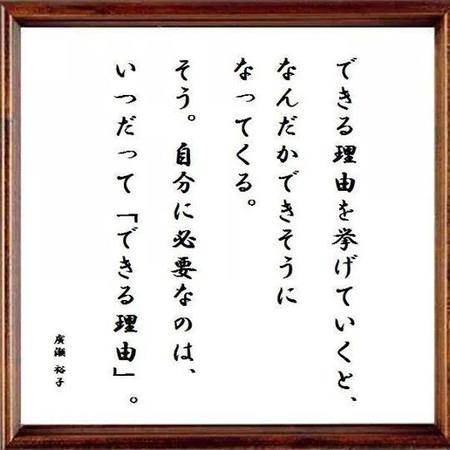 できる理由を挙げていくと、
なんだかできそうに
なってくる。
そう。自分に必要なのは、
いつだって「できる理由」。
廣瀬 裕子